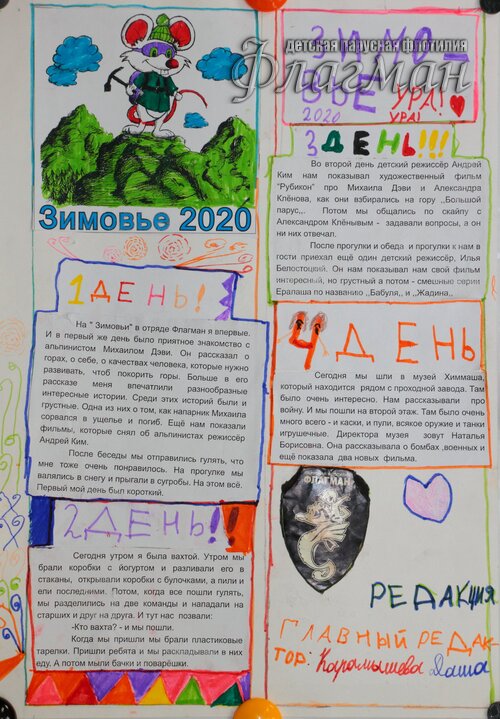 Зимовье 2020
1 ДЕНЬ!
На " Зимовьи" в отряде Флагман я впервые.
И в первый же день было приятное знакомство с
альпинистом Михаилом Дэви. Он рассказал о
горах, о себе, о качествах человека, которые нужно
развивать, чтоб покорить горы. Больше в его
рассказе меня впечатлили разнообразные
интересные истории. Среди этих историй были и
грустные. Одна из них о том, как напарник Михаила
сорвался в ущелье и погиб. Ещё нам показали
фильмы, которые снял об альпинистах режиссёр
Андрей Ким.
После беседы мы отправились гулять, что
мне тоже очень понравилось. На прогулке мы
валялись в снегу и прыгали в сугробы. На этом всё.
Первый мой день был короткий.
2 ДЕНЬ!!
Сегодня утром я была вахтой. Утром мы
брали коробки с йогуртом и разливали его в
стаканы, открывали коробки с булочками, а пили и
ели последними. Потом, когда все пошли гулять,
мы разделились на две команды и нападали на
старших и друг на друга. И тут нас позвали:
-Кто вахта? - и мы пошли.
Когда мы пришли мы брали пластиковые
тарелки. Пришли ребята и мы раскладывали в них
еду. А потом мыли бачки и поварёшки.
детская парусная флотилия
Флагман
ЗИМО-
ВЬЕ УРА!
2020 УРА!
3 ДЕНЬ!!!
Во второй день детский режиссёр Андрей
Ким нам показывал художественный фильм
"Рубикон" про Михаила Дэви и Александра
Клёнова, как они взбирались на гору ,,Большой
парус,,. Потом мы общались по скайпу с
Александром Клёнывым - задавали вопросы, а он
ни них отвечал.
После прогулки и обеда и прогулки к нам в
гости приехал ещё один детский режиссёр, Илья
Белостоцкий. Он нам показывал нам свой фильм
интересный, но грустный а потом - смешные серии
Ералаша по названию ,,Бабуля,, и ,,Жадина,,.
4 ДЕНЬ
Сегодня мы шли в музей Химмаша,
который находится рядом с проходной завода. Там
было очень интересно. Нам рассказывали про
войну. И мы пошли на второй этаж. Там было очень
много всего - и каски, и пули, всякое оружие и танки
игрушечные. Директора музея зовут Наталья
Борисовна. Она рассказывала о бомбах ,военных и
ещё показала два новых фильма.
ФЛАГМАН
РЕДАКЦИЯ
ГЛАВНЫЙ РЕДАК-
ТОР: Карамышева Даша